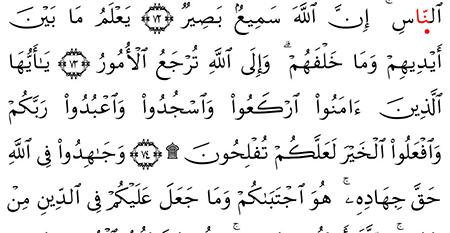 ٱلنَّاسِ ۚ إِنَّ ٱللَّهَ سَمِيعٌۢ بَصِيرٌ ٧٢ يَعْلَمُ مَا بَيْنَ
أَيْدِيهِمْ وَمَا خَلْفَهُمْ ۗ وَإِلَى ٱللَّهِ تُرْجَعُ ٱلْأُمُورُ ٧٣ يَٰٓأَيُّهَا
ٱلَّذِينَ ءَامَنُوا۟ ٱرْكَعُوا۟ وَٱسْجُدُوا۟ وَٱعْبُدُوا۟ رَبَّكُمْ
وَٱفْعَلُوا۟ ٱلْخَيْرَ لَعَلَّكُمْ تُفْلِحُونَ ۩ ٧٤ وَجَٰهِدُوا۟ فِى ٱللَّهِ
حَقَّ جِهَادِهِۦ ۚ هُوَ ٱجْتَبَىٰكُمْ وَمَا جَعَلَ عَلَيْكُمْ فِى ٱلدِّينِ مِنْ